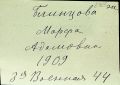 Блинцова
Марфа
Адамовна
1909
3я Военная 44